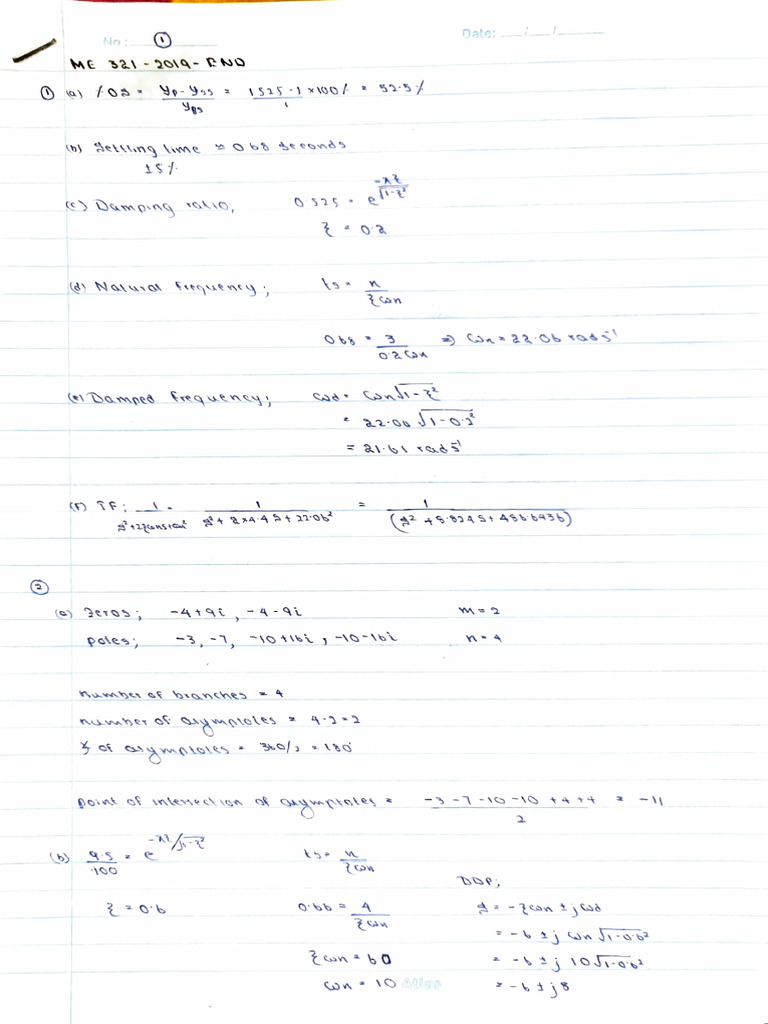 No: ①
Date: __/__/__
ME 321 - 2019 - END
① (a) %OS = (yp - yss)/yss = (1.525 - 1)/1 × 100% = 52.5%
(b) Settling time = 0.68 seconds
±5%
(c) Damping ratio, 0.525 = e^(-πξ/√(1-ξ²))
ξ = 0.2
(d) Natural frequency; ts = n/(ξωn)
0.68 = 3/(0.2ωn) ⇒ ωn = 22.06 rads⁻¹
(e) Damped frequency; ωd = ωn√(1-ξ²)
= 22.06 √(1-0.2²)
= 21.61 rads⁻¹
(f) TF: 1/(s²+2ξωns+ωn²) = 1/(s² + 2×4.4 s + 22.06²) = 1/(s² + 8.824s + 486.6436)
②
(a) Zeros; -4+9i, -4-9i m=2
poles; -3, -7, -10+16i, -10-16i n=4
number of branches = 4
number of asymptotes = 4-2=2
∠ of asymptotes = 360/2 = 180°
point of intersection of asymptotes = (-3-7-10-10+4+4)/2 = -11
(b) 9.5/100 = e^(-πξ/√(1-ξ²)) ts = n/(ξωn)
DDP;
ξ = 0.6 0.66 = 4/(ξωn) s = -ξωn ± jωd
= -6 ± j ωn√(1-0.6²)
ξωn = 6 = -6 ± j 10√(1-0.6²)
ωn = 10 Atlas = -6 ± j8